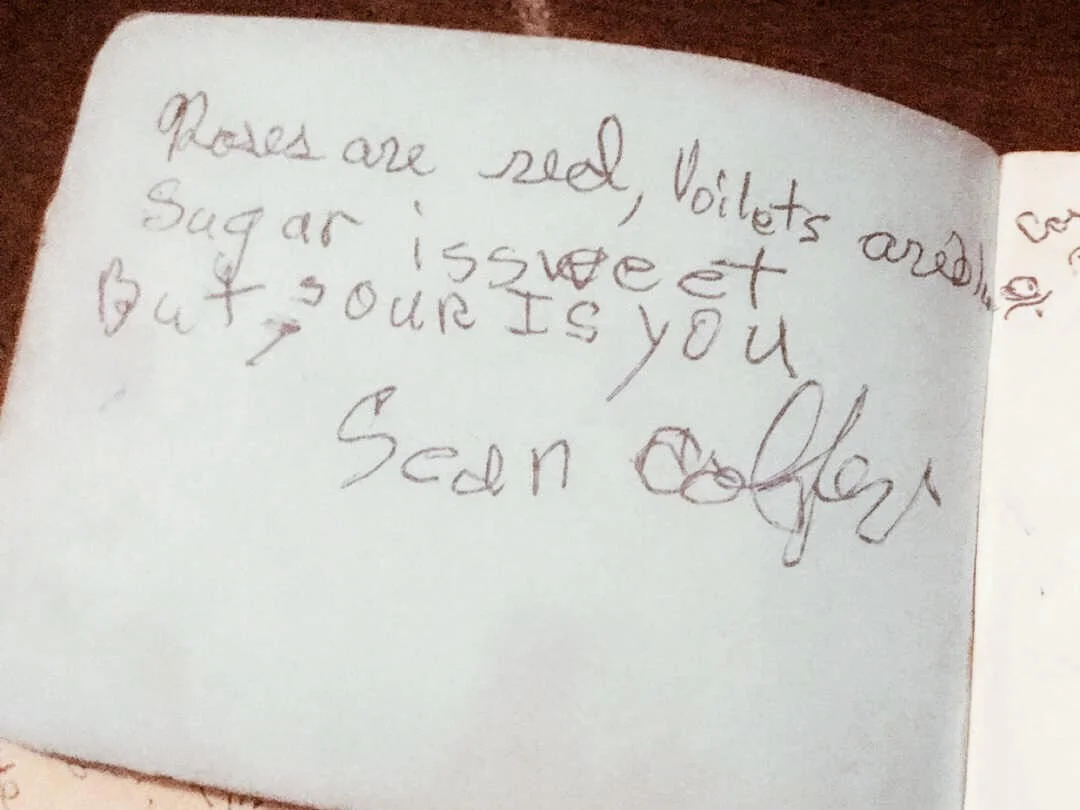 Roses are red, Voilets are
Sugar is sweet
But, sour Is you
Sean